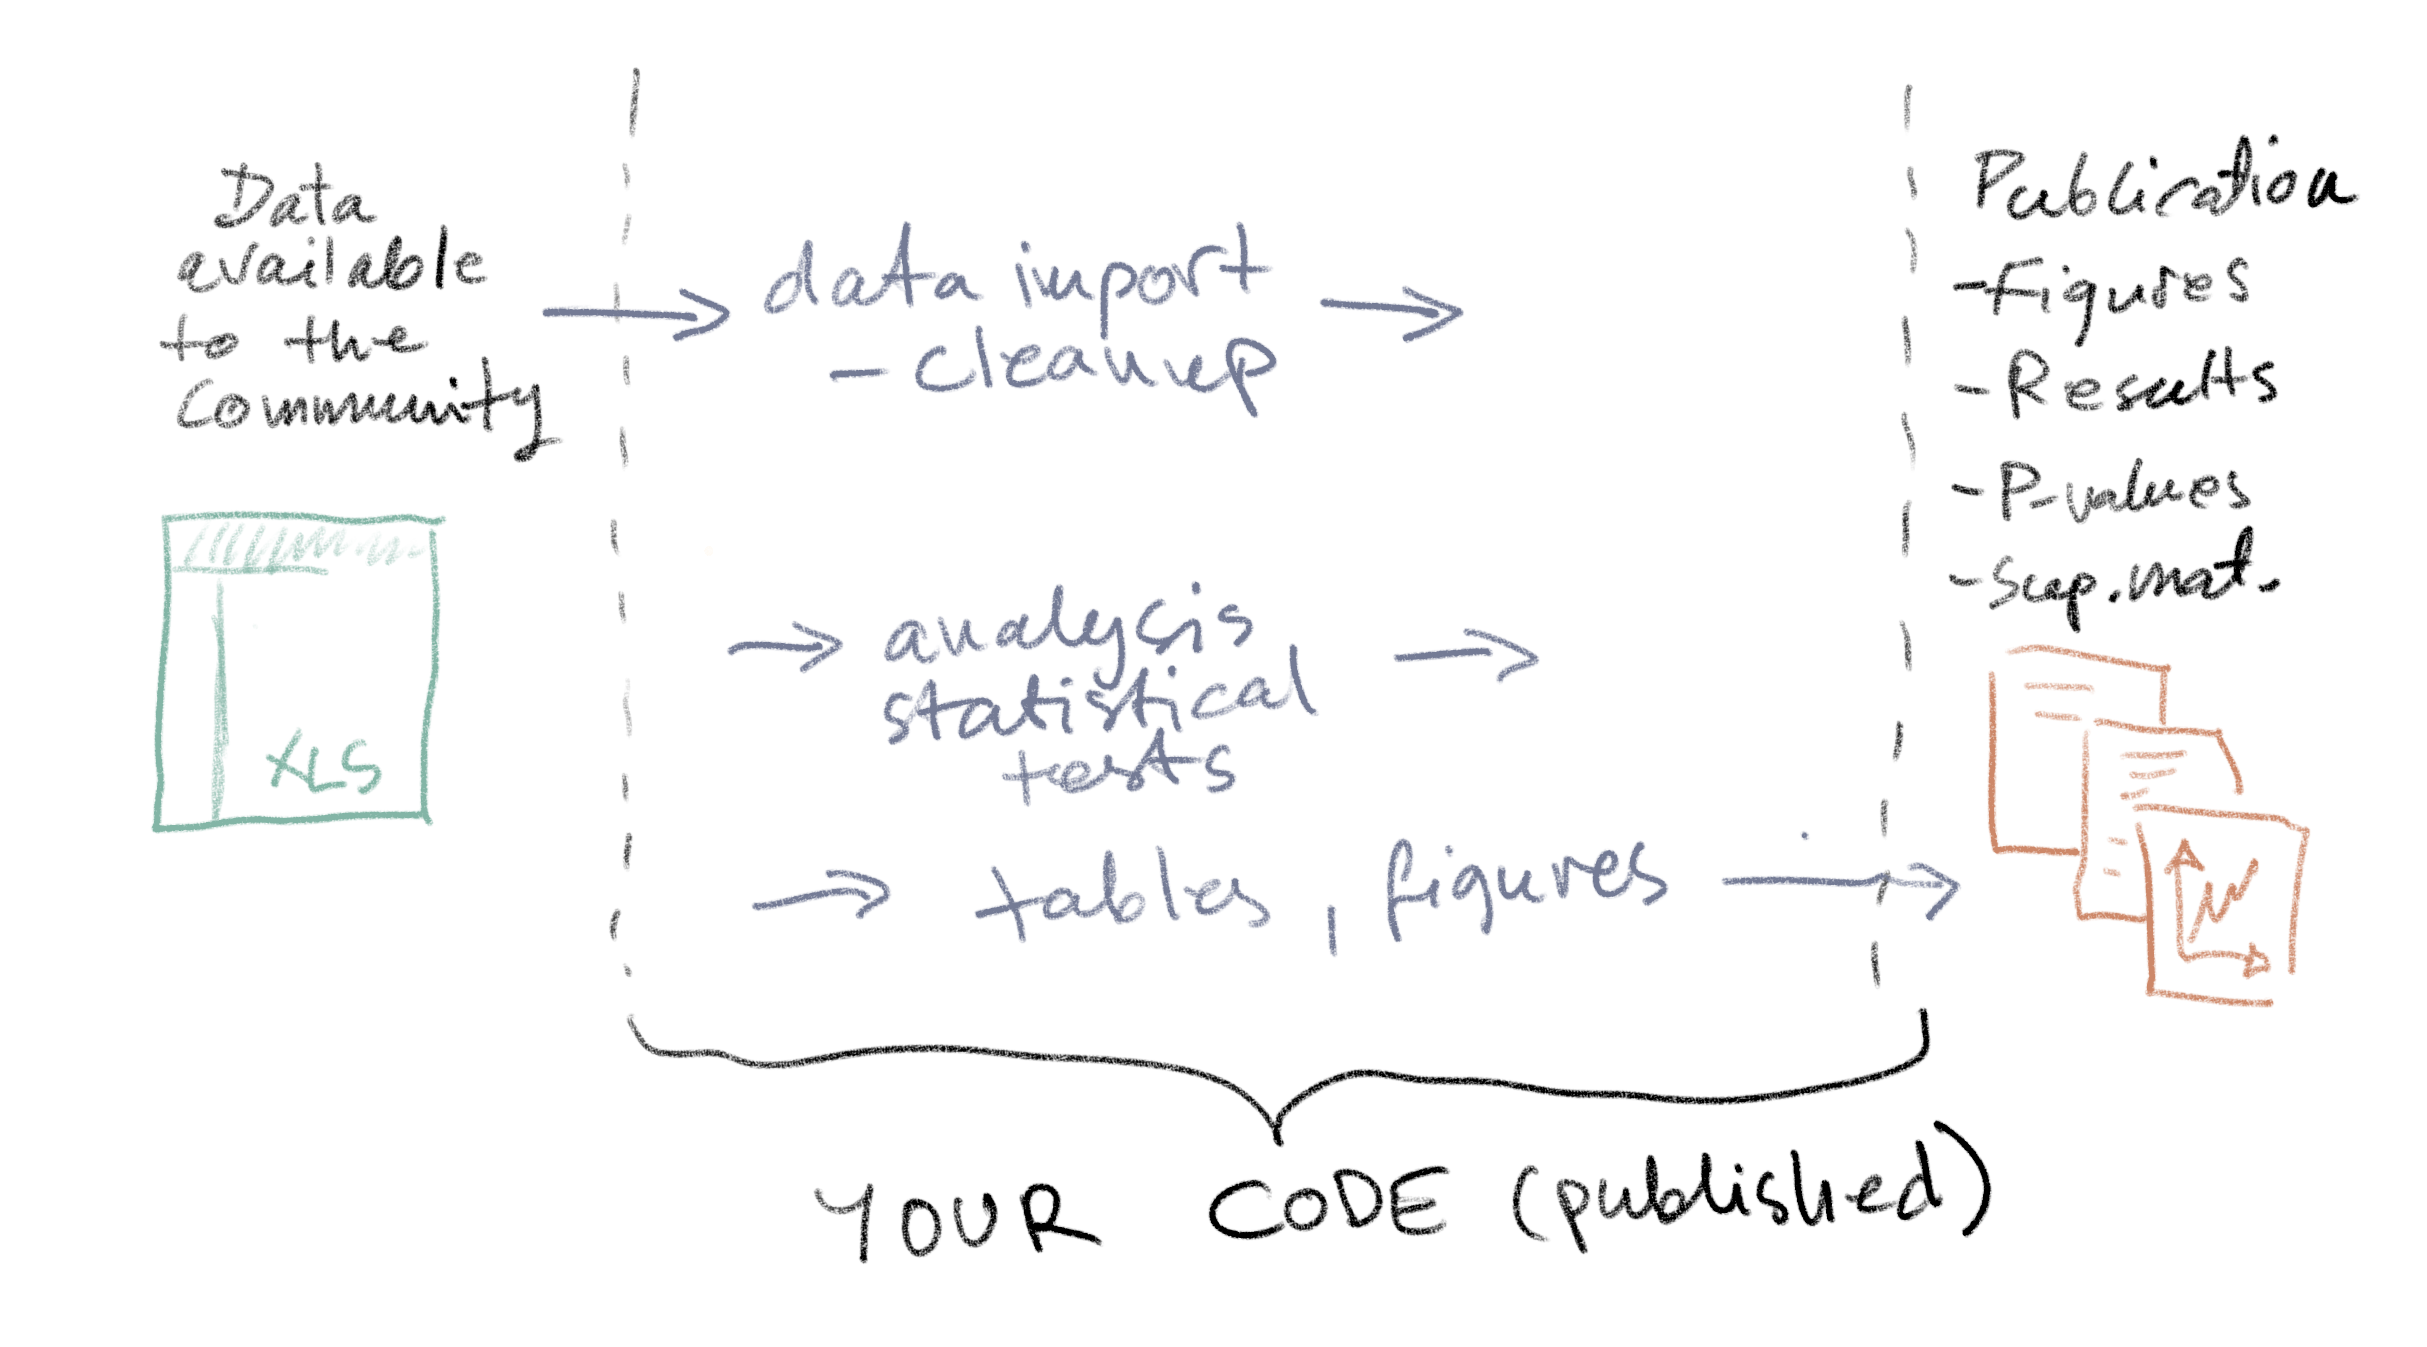 Data
available
to the
Community
XLS
data import
- cleanup
analysis
statistical
tests
tables, figures
Publication
- Figures
- Results
- P-values
- Sup. mat.
YOUR CODE (published)